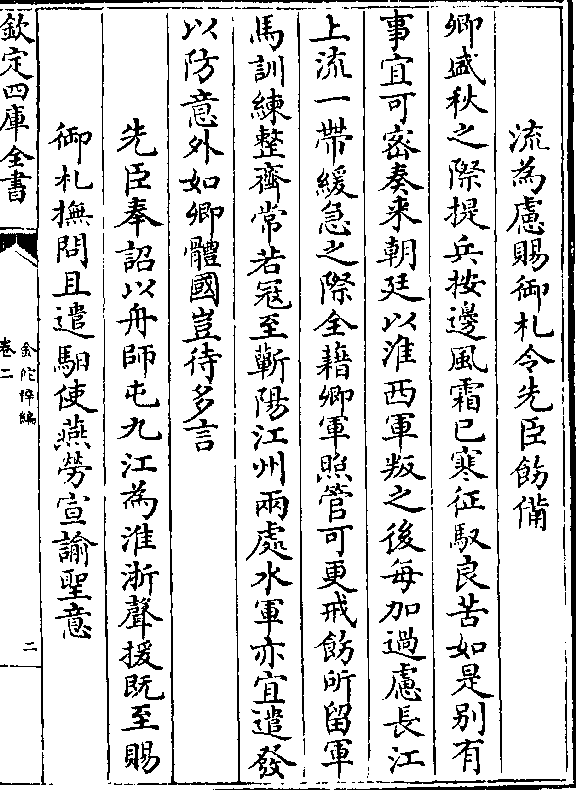 流為慮賜御札令先臣飭備
卿盛秋之際提兵按邊風霜已寒征馭良苦如是别有
事宜可密奏来朝廷以淮西軍叛之後每加過慮長江
上流一帶緩急之際全藉卿軍照管可更戒飭所留軍
馬訓練整齊常若冦至蘄陽江州兩處水軍亦宜遣發
以防意外如卿體國豈待多言
先臣奉詔以舟師屯九江為淮浙聲援既至賜
御札撫問且遣馹使燕勞宣諭聖意
欽定四庫全書
金陀稡編
卷二
二